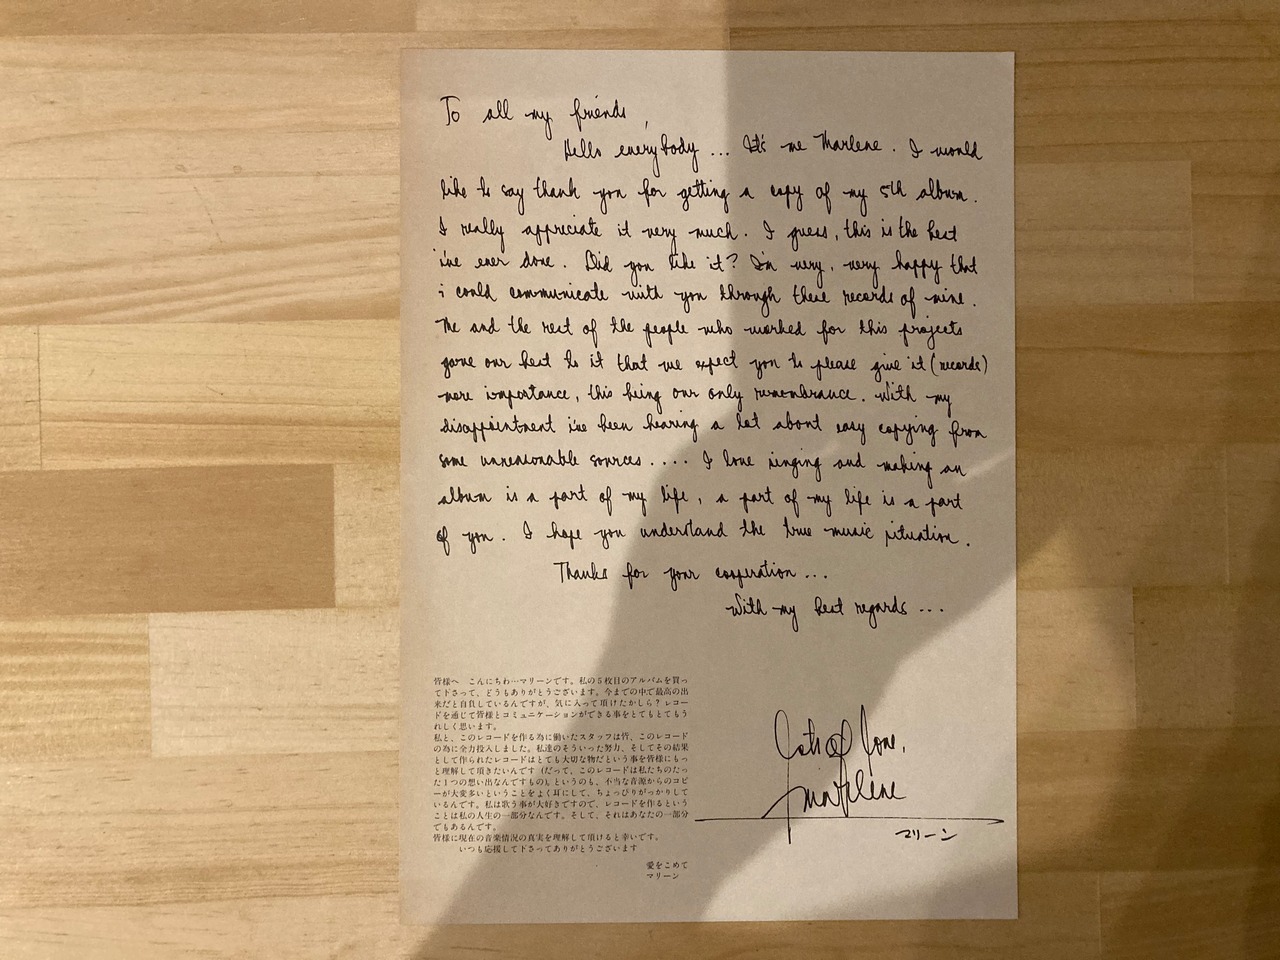 To all my friends,
Hello everybody ... It's me Marlene. I would
like to say thank you for getting a copy of my 5th album.
I really appreciate it very much. I guess, this is the best
i've ever done. Did you like it? I'm very, very happy that
i could communicate with you through these records of mine.
Me and the rest of the people who worked for this projects
gave our best to it that we expect you to please give it (records)
more importance, this being our only remembrance. With my
disappointment i've been hearing a lot about easy copying from
some unreasonable sources.... I love singing and making an
album is a part of my life, a part of my life is a part
of you. I hope you understand the true music situation.
Thanks for your cooperation...
With my best regards...
皆様へ こんにちわ…マリーンです。私の5枚目のアルバムを買っ
て下さって、どうもありがとうございます。今までの中で最高の出
来だと自負しているんですが、気に入って頂けたかしら?レコー
ドを通じて皆様とコミュニケーションができる事をとてもとてもう
れしく思います。
私と、このレコードを作る為に働いたスタッフは皆、このレコード
の為に全力投入しました。私達のそういった努力、そしてその結果
として作られたレコードはとても大切な物だという事を皆様にもっ
と理解して頂きたいんです(だって、このレコードは私たちのたっ
た1つの想い出なんですもの)。というのも、不当な音源からのコピ
ーが大変多いということをよく耳にして、ちょっぴりがっかりして
いるんです。私は歌う事が大好きですので、レコードを作るという
ことは私の人生の一部分なんです。そして、それはあなたの一部分
でもあるんです。
皆様に現在の音楽情況の真実を理解して頂けると幸いです。
いつも応援して下さってありがとうございます
愛をこめて
マリーン
Lots of love,
Marlene
マリーン